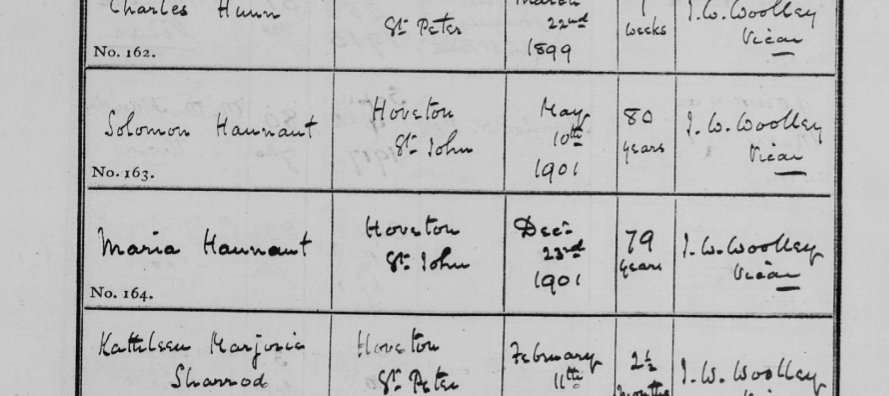 Charles Hunn
St Peter
March
22nd
1899
weeks
J. W. Woolley
Vicar
No. 162.
Solomon Hannant
Hoveton
St John
May
10th
1901
80
years
J. W. Woolley
Vicar
No. 163.
Maria Hannant
Hoveton
St John
Dec:
23rd
1901
79
years
J. W. Woolley
Vicar
No. 164.
Kathleen Marjorie
Sharrod
Hoveton
St Peter
February
11th
2½
months
J. W. Woolley